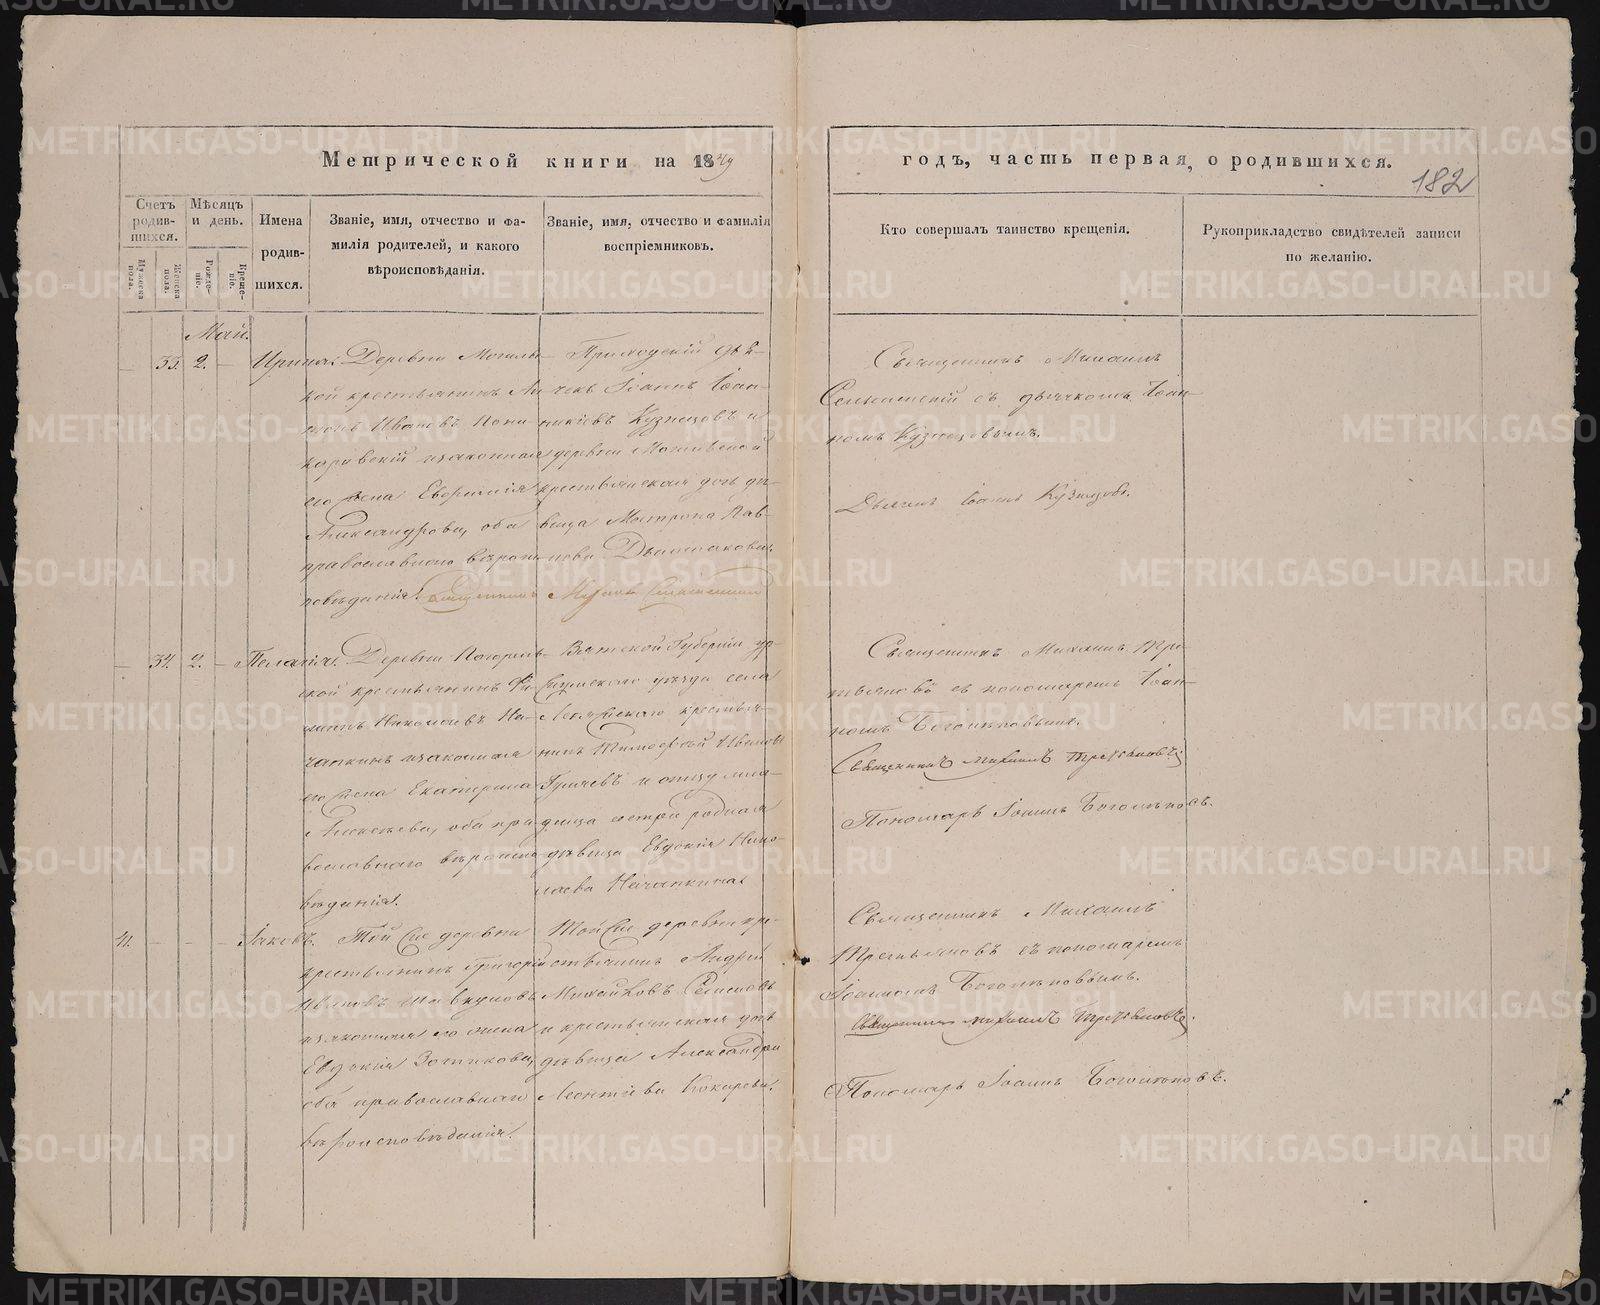 Метрической книги на 1849
годъ, часть первая, о родившихся.
182
Счетъ родив-шихся.
Мужеска пола.
Женска пола.
Мѣсяцъ и день.
Рожде-ніе.
Креще-ніе.
Имена родив-шихся.
Званіе, имя, отчество и фа-
милія родителей, и какого
вѣроисповѣданія.
Званіе, имя, отчество и фамилія
воспріемниковъ.
Кто совершалъ таинство крещенія.
Рукоприкладство свидѣтелей записи
по желанію.
Май.
— 33. 2. — Ирина.
Деревни
кой крестьянинъ
Ивановъ
изаконная
его жена
Александрова, оба
православнаго вѣроис-
повѣданія.
Приходскій дья-
чекъ Іоаннъ Іоан-
никіевъ Кузнецовъ и
деревни
крестьянская дочь дѣ-
вица Матрона
Священникъ Михаилъ
съ дьячкомъ Іоан-
номъ Кузнецовымъ.
Іоаннъ Кузнецовъ.
— 34. 2. — Пелагія.
Деревни
ской крестьянинъ Фи-
липпъ Николаевъ На-
чапкинъ изаконная
его жена Екатерина
Алексѣева, оба пра-
вославнаго вѣроиспо-
вѣданія.
Вятской Губерніи ур-
жумскаго уѣзда села
крестья-
нинъ Тимофей Ивановъ
и отцу мла-
денца сестра родная
дѣвица Евдокія Нико-
лаева Начапкина.
Священникъ Михаилъ Тре-
тьяковъ съ пономаремъ Іоан-
номъ Боголѣповымъ.
Священникъ Михаилъ Третьяковъ.
Пономарь Іоаннъ Боголѣповъ.
41. — — — Іаковъ.
Той же деревни
крестьянинъ Григорій
Ивановъ
изаконная его жена
Евдокія Зотикова,
оба православнаго
вѣроисповѣданія.
Той же деревни кре-
стьянинъ Андрей
Михайловъ Семеновъ
и крестьянская дочь
дѣвица Александра
Леонтіева Кокарева.
Священникъ Михаилъ
Третьяковъ съ пономаремъ
Іоанномъ Боголѣповымъ.
Священникъ Михаилъ Третьяковъ.
Пономарь Іоаннъ Боголѣповъ.
METRIKI.GASO-URAL.RU